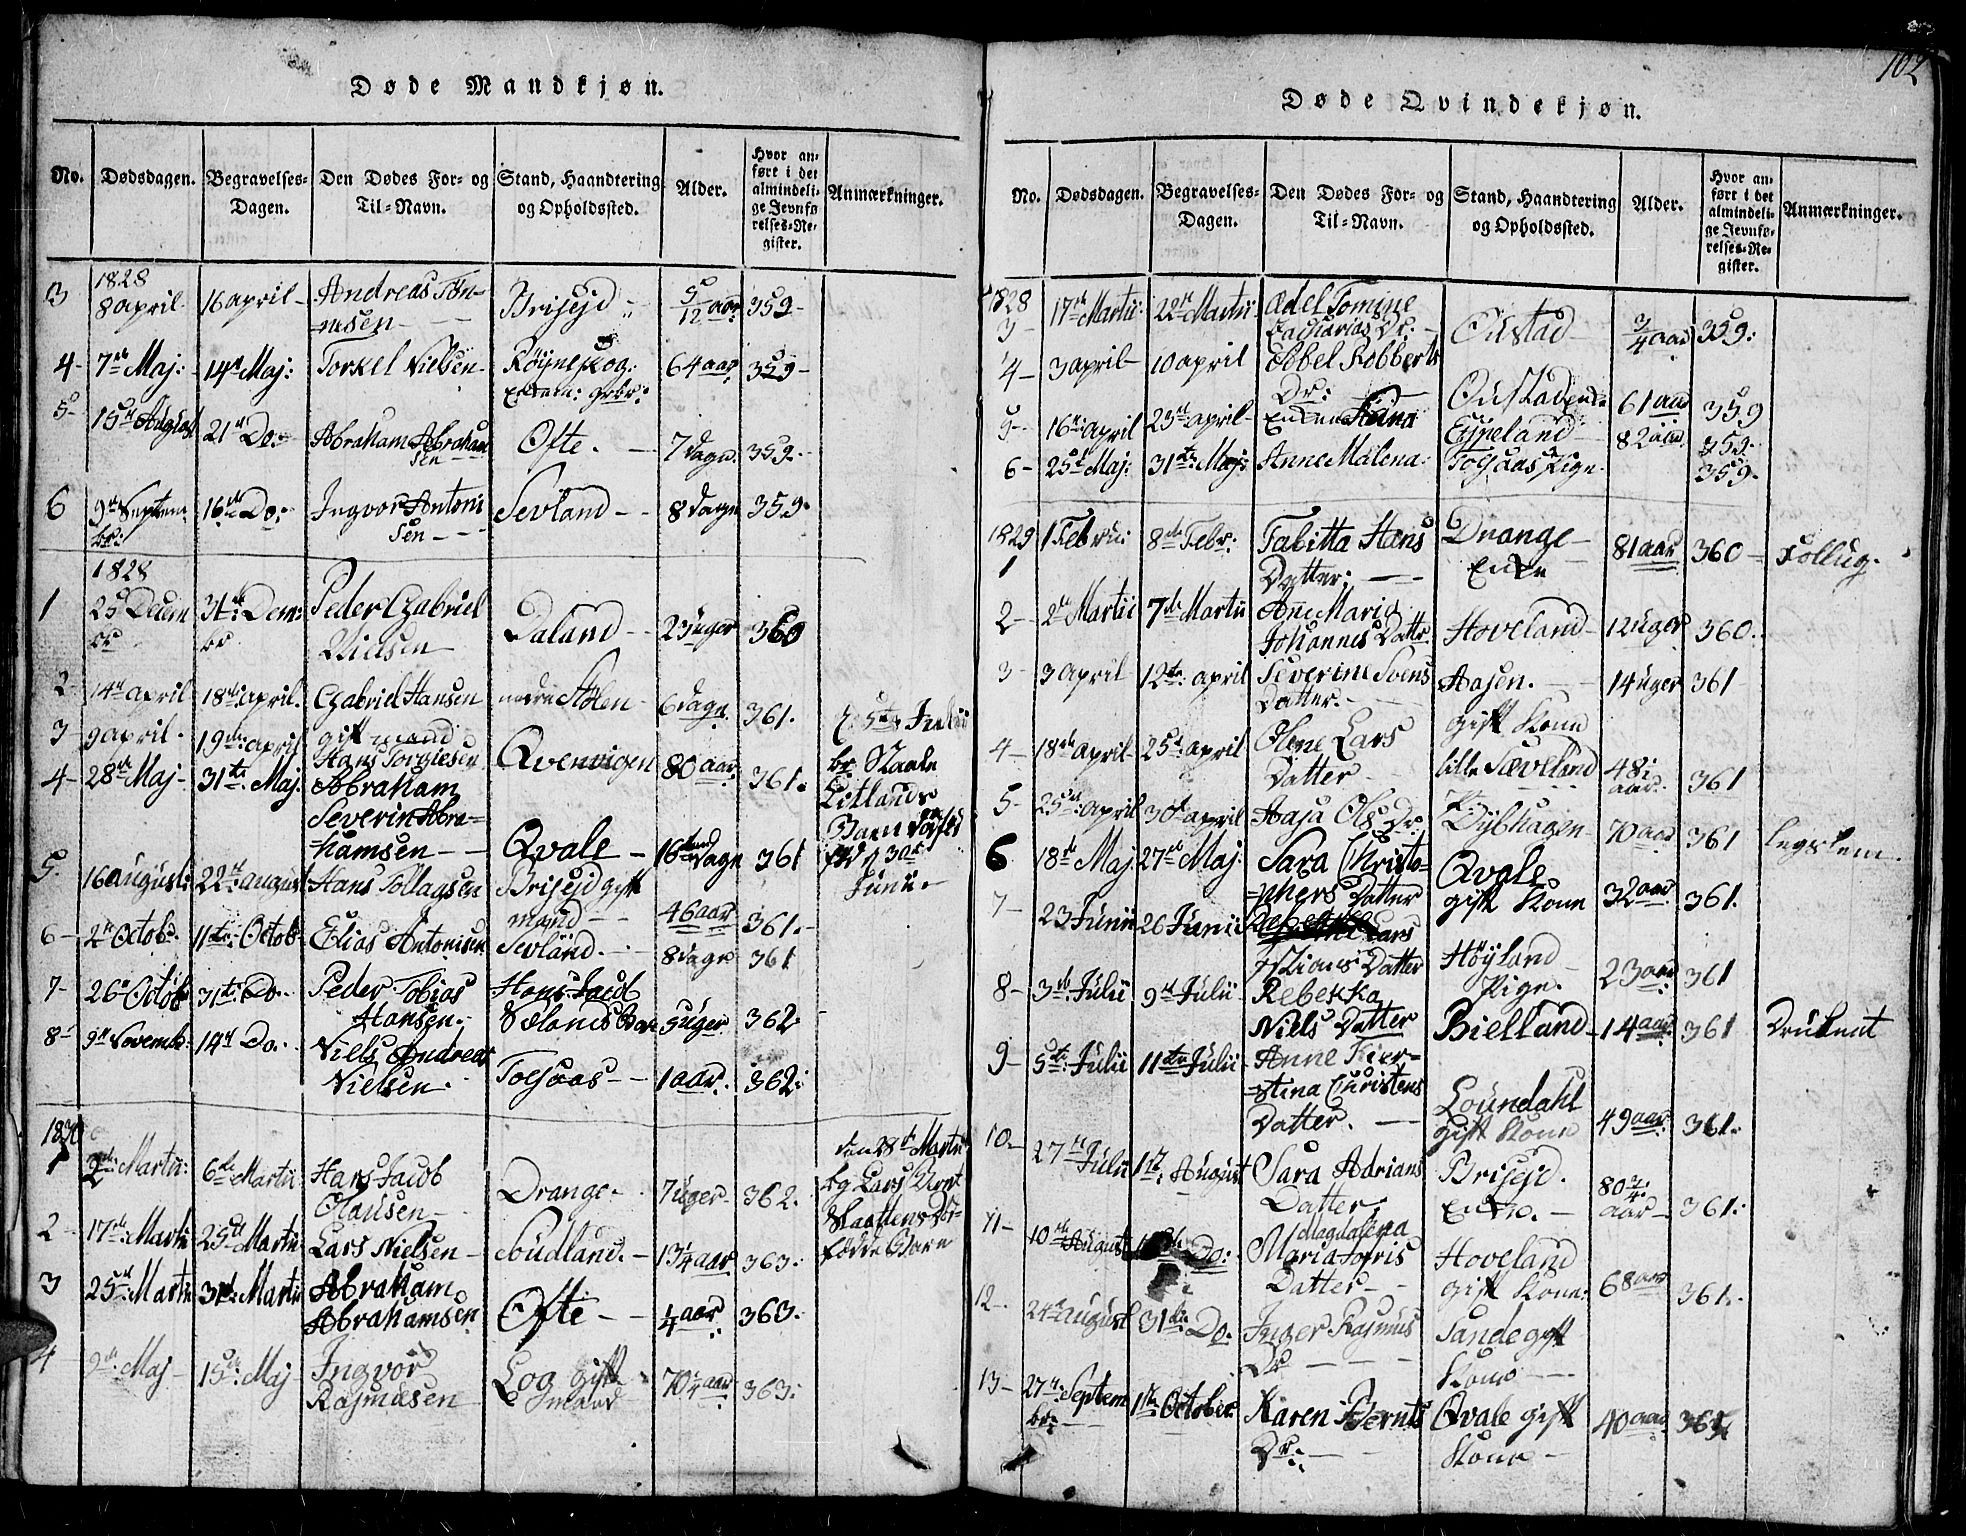 102
Døde Mandkjøn.
No. Dødsdagen. Begravelses-Dagen. Den Dødes For- og Til-Navn. Stand, Haandtering og Opholdssted. Alder. Hvor anføre i det almindelige Jevnførelses-Register. Anmærkninger.
1828
3 8 april 16 april Andreas Tønnesen Brisejd 5/12 aar 359
4 7de Maj: 14de Maj: Torkel Nielsen Røyneskog 64 aar 359
5 15de August 21de Do. Abraham Abrahamsen Ofte. 7 dage. 359
6 9de Septembr: 16de Do: Ingvor Antonisen Sevland 8 dage 359
1828
1 25 Decembr 31te Decmbr Peder Gabriel Nielsen Daland 23 uger 360
2 14de april 18de april. Gabriel Hansen nedre Stølen 6 dage 361.
3 9 april 19de april gift mand Hans Torgiesen Qvenvigen 80 aar 361.
4 28de Maj 31te Maj. Abraham Severin Abrahamsen Qvale 16 dage 361
5 16 August: 22de august Hans Tollagsen Brisejd gift mand 46 aar 361.
6 2de Octob. 11te Octob Elias Antonisen Sevland. 8 dage 361
7 26 Octob 31te Do. Peder Tobias Hansen. Hans Jacob 5 uger 362
8 9de Novemb: 14de Do. Niels Andreas Nielsen. Tofsaas 1 aar. 362:
1830
1 2de Martii: 6de Martii Hans Jacob Olausen Drange 7 uger 362. den 28de Martii
bg Lars Bernt
2 17de Martii 25de Martii Lars Nielsen Loudland. 13 1/4 aar 363. fødde Barn
3 25de Martii 31te Martii Abraham Abrahamsen Ofte 1/4 aar 363.
4 9de Maj 15de Maj Ingvor Rasmusen Log gift mand 70 1/4 aar 363.
Døde Qvindekjøn.
No. Dødsdagen. Begravelses-Dagen. Den Dødes For- og Til-Navn. Stand, Haandtering og Opholdssted. Alder. Hvor anføre i det almindelige Jevnførelses-Register. Anmærkninger.
1828
3 17de Martii: 22de Martii Ædel Tomine Zacharias Dr. Oustad 3/4 aar 359:
4 3 april 10 april Ebbel Robberts Dr: Oustad 61 aar 359
5 16de april 23de april Enken Espeland 82 aar 359.
6 25de Maj: 31te Maj: Anne Malena: Tofsaas Pige 359.
1829
1 1 Febru: 8de Febr: Tabitta Hans Datter: Drange Enke 81 aar 360
2 2de Martii 7de Martii Ane Maria Johannes Dattr Hoveland 12 uger 360.
3 3 April 12te april Severine Svens Datter. Aasen. 14 uger 361
4 18de april 25de april Olene Lars Datter gift Kone lille Sæveland 48 aar. 361
5 25de april 30te april Aasa Ols Dr. Dybhagen 70 aar 361 legslem.
6 18de Maj 27de Maj: Sara Christophers Datter Qvale gift Kone 32 aar. 361.
7 23 Junii 26 Junii Lars Datter Høyland Pige. 23 aar 361
8 3de Julii 9de Julii Rebekka Niels Datter Bielland 14 aar 361 Druknet
9 5te Julii 11te Julii Anne Kierstina Christens Datter. Loundahl gift Kone 49 aar. 361.
10 27de Julii 1te August Sara Adrians Datter Brisejd. Enke. 80 3/4 aar 361.
11 10de August Do: Magdalena Maria Tofris Datter Hoveland gift Kone: 68 aar 361.
12 24de august 31te Do. Inger Rasmus Dr Sande gift Kone
13 27de Septembr: 1te October. Karen Bernts Dr: Qvale gift Kone 40 aar.